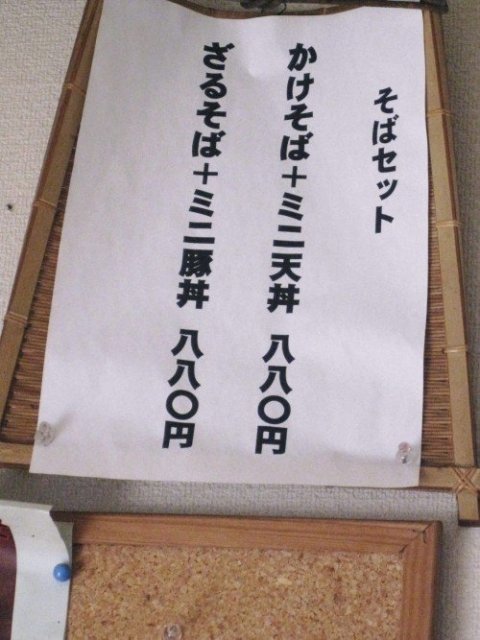 そばセット
かけそば＋ミニ天丼 八八〇円
ざるそば＋ミニ豚丼 八八〇円